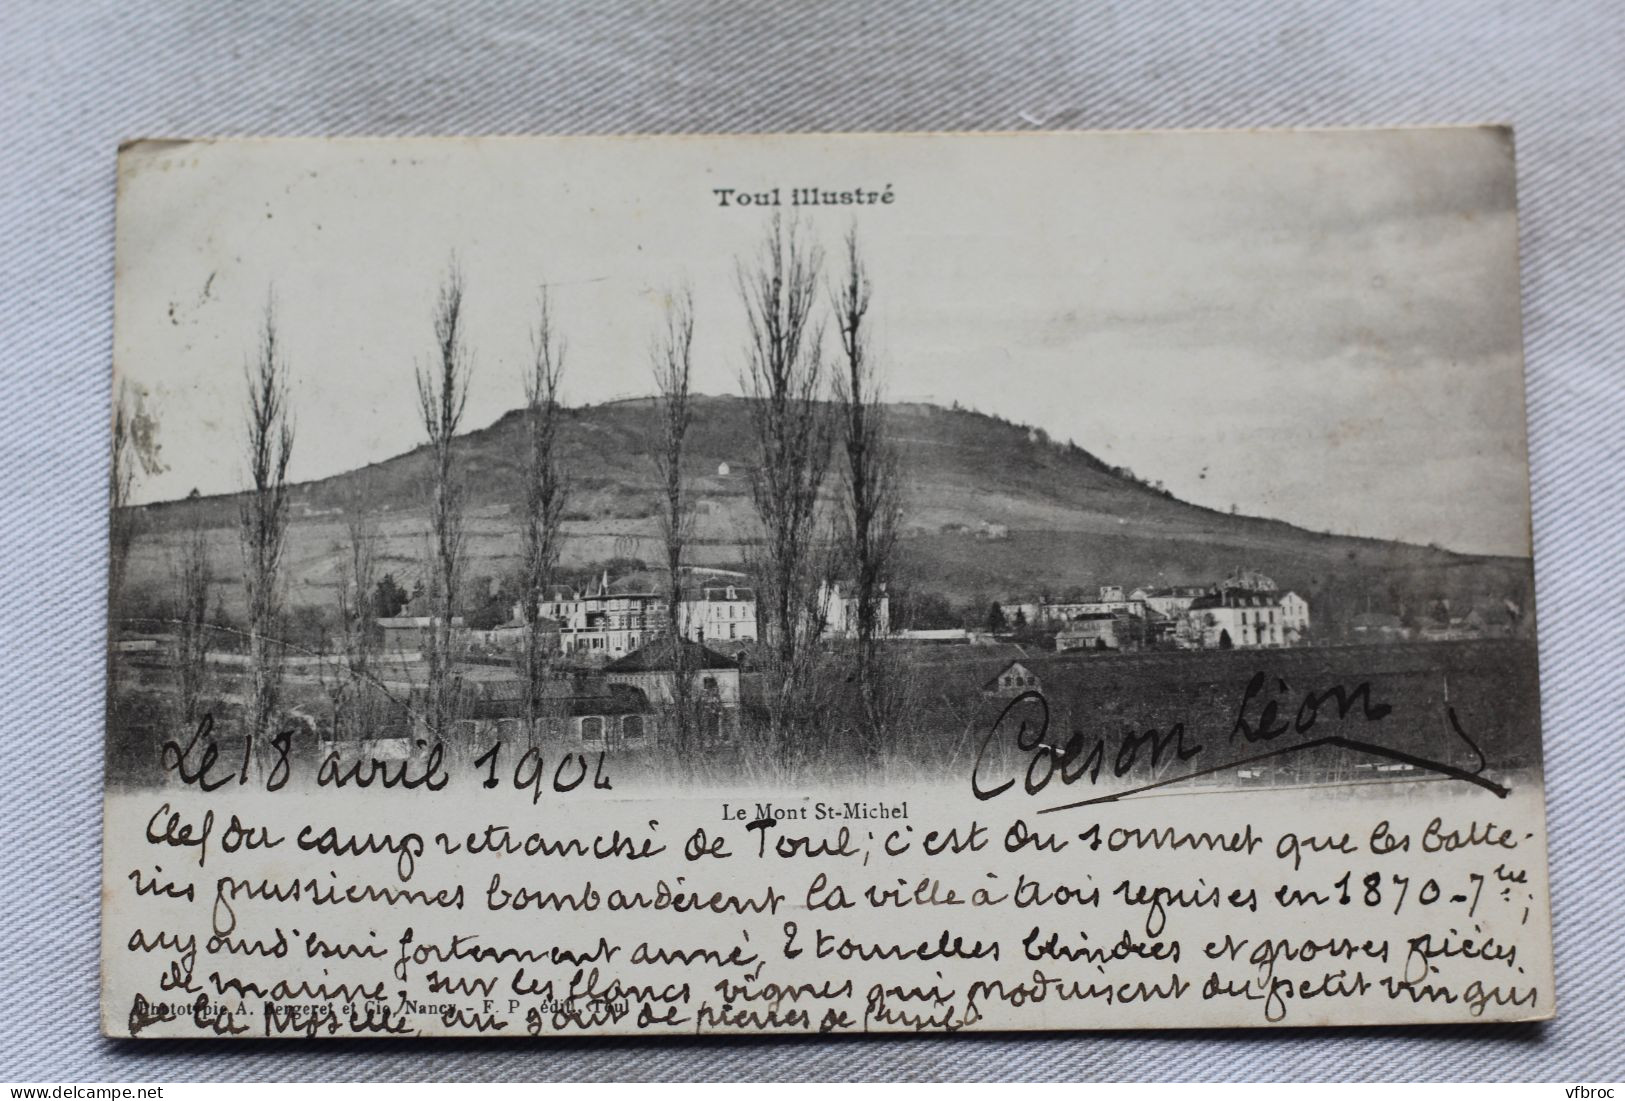 Toul illustré
Coeson Léon
Le 18 avril 1904
Le Mont St-Michel
Clef du camp retranché de Toul; c'est du sommet que les batte-
ries prussiennes bombardèrent la ville à trois reprises en 1870-71re;
aujourd'hui fortement armé, 2 tourelles blindées et grosses pièces
de marine; sur les flancs, vignes qui produisent du petit vin gris
de la Moselle, au goût de pierres de
Phototypie A. Bergeret et Cie, Nancy - F. P. édit. Toul
vfbroc